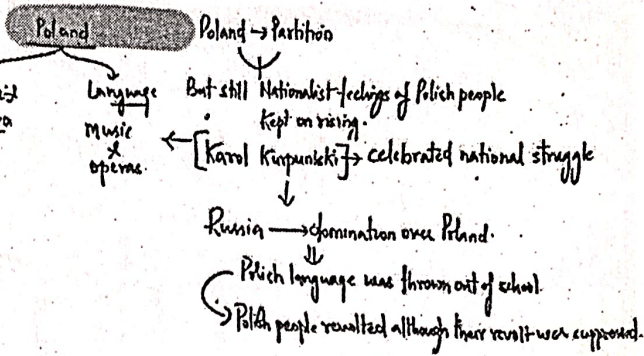 Poland
Poland → Partition
Language
music
&
operas.
But still Nationalist feelings of Polish people
Kept on rising.
← [Karol Kurpunski] → celebrated national struggle
↓
Russia → domination over Poland.
⇓
Polish language was thrown out of school.
Polish people revolted although their revolt was suppressed.